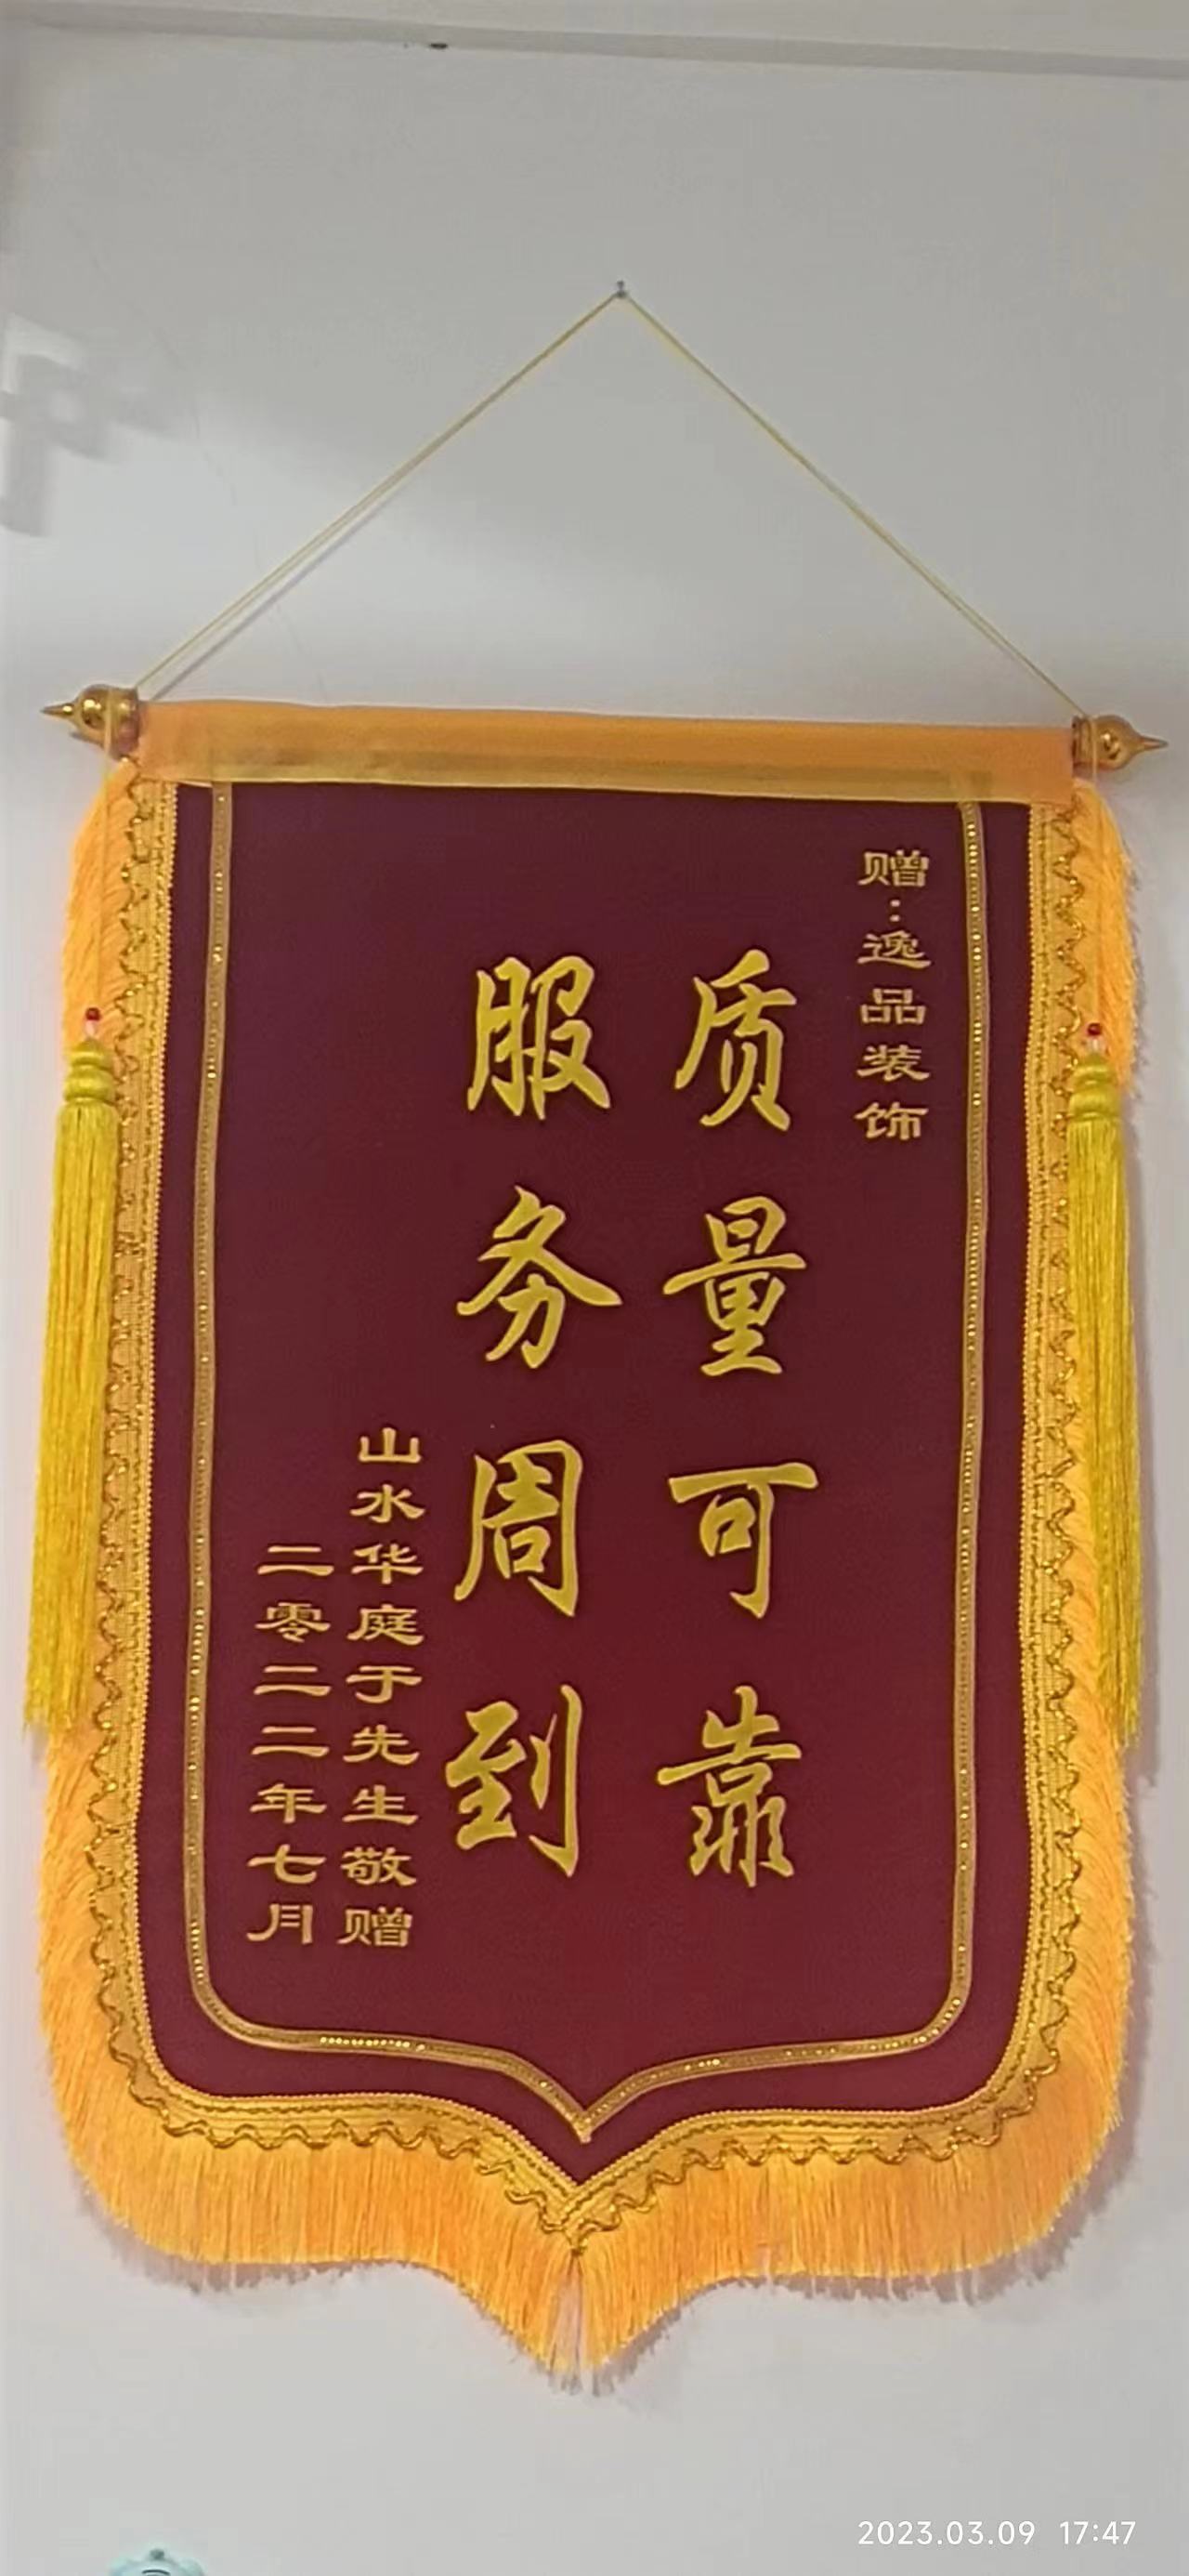 赠:逸品装饰
质量可靠
服务周到
山水华庭于先生敬赠
二零二二年七月
2023.03.09 17:47